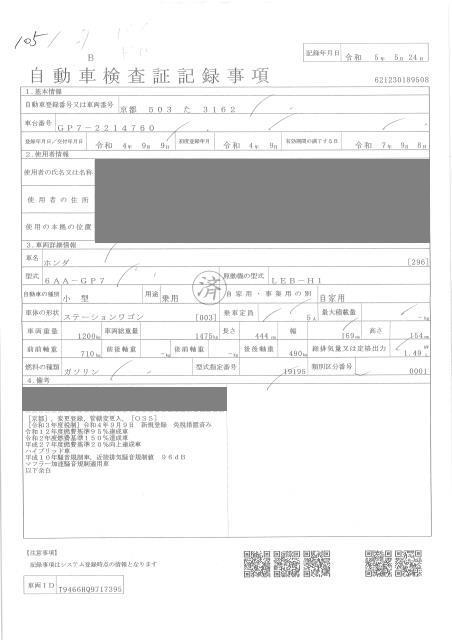 105
B
記録年月日 令和 5年 5月 24日
自動車検査証記録事項
621230189508
1.基本情報
自動車登録番号又は車両番号 京都 503 た 3162
車台番号 GP7-2214760
登録年月日/交付年月日 令和 4年 9月 9日 初度登録年月 令和 4年 9月 有効期間の満了する日 令和 7年 9月 8日
2.使用者情報
使用者の氏名又は名称
使用者の住所
使用の本拠の位置
3.車両詳細情報
車名 ホンダ [296]
型式 6AA-GP7 原動機の型式 LEB-H1
済
自動車の種別 小型 用途 乗用 自家用・事業用の別 自家用
車体の形状 ステーションワゴン [003] 乗車定員 5人 最大積載量 -kg
車両重量 1200kg 車両総重量 1475kg 長さ 444cm 幅 169cm 高さ 154cm
前前軸重 710kg 前後軸重 -kg 後前軸重 -kg 後後軸重 490kg 総排気量又は定格出力 1.49
燃料の種類 ガソリン 型式指定番号 19195 類別区分番号 0001
4.備考
[京都],変更登録,管轄変更入,[OSS]
[令和3年度税制]令和4年9月9日 新規登録 免税措置済み
令和12年度燃費基準95%達成車
令和2年度燃費基準150%達成車
平成27年度燃費基準20%向上達成車
ハイブリッド車
平成10年騒音規制車、近接排気騒音規制値 96dB
マフラー加速騒音規制適用車
以下余白
【注意事項】
記録事項はシステム登録時点の情報となります
車両ID T9466HQ9717395